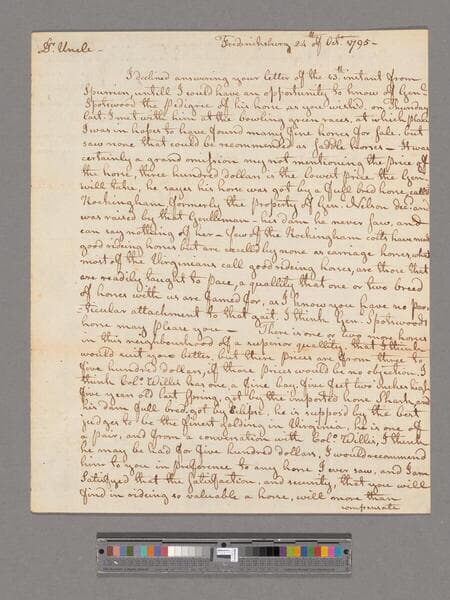 Fredericksburg 24th of Oct. 1795 –
Dr. Uncle –
I declined answering your letter of the 13th instant from
Spurrier, untill I could have an opportunity to know of Genl.
Spotswood the Pedigree of his horse as you wished, on Thursday
last I met with him at the bowling green races, at which place
I was in hopes to have found many fine horses for sale, but
saw none that could be recommended as saddle horses – It was
certainly a grand omission my not mentioning the price of
the horse, three hundred dollars is the lowest price the Genl.
will take, he sayes his horse was got by a full bred horse, called
Rockingham, formerly the property of Genl. Nelson decd. and
was raised by that Gentleman – his dam he never saw, and
can say nothing of her – few of the Rockingham colts have made
good rideing horses but are excelled by none as carriage horses, what
most of the Virginians call good rideing horses, are those that
are readily taught to pace, a quallity that one or two breed
of horses with us are famed for, as I know you have no par-
-ticular attachment to that gait I think Genl. Spotswoods
horse may please you – There is one or two more horses
in this neighbourhood of a superior quallity, that I think
would suit you better, but there prices are from three to
five hundred dollars, if those prices would be no objection, I
think Colo. Willis has one, a fine bay, five feet two inches high
five years old last spring, got by the imported horse Shark, and
his dam full bred, got by , he is suppos'd by the best
judges to be the finest Gelding in Virginia, he is one of
a pair, and from a conversation with Colo. Willis, I think
he may be had for five hundred dollars, I would recommend
him to you in preference to any horse I ever saw, and I am
satisfyed that the satisfaction, and security, that you will
find in rideing so valuable a horse, will more than
compensate